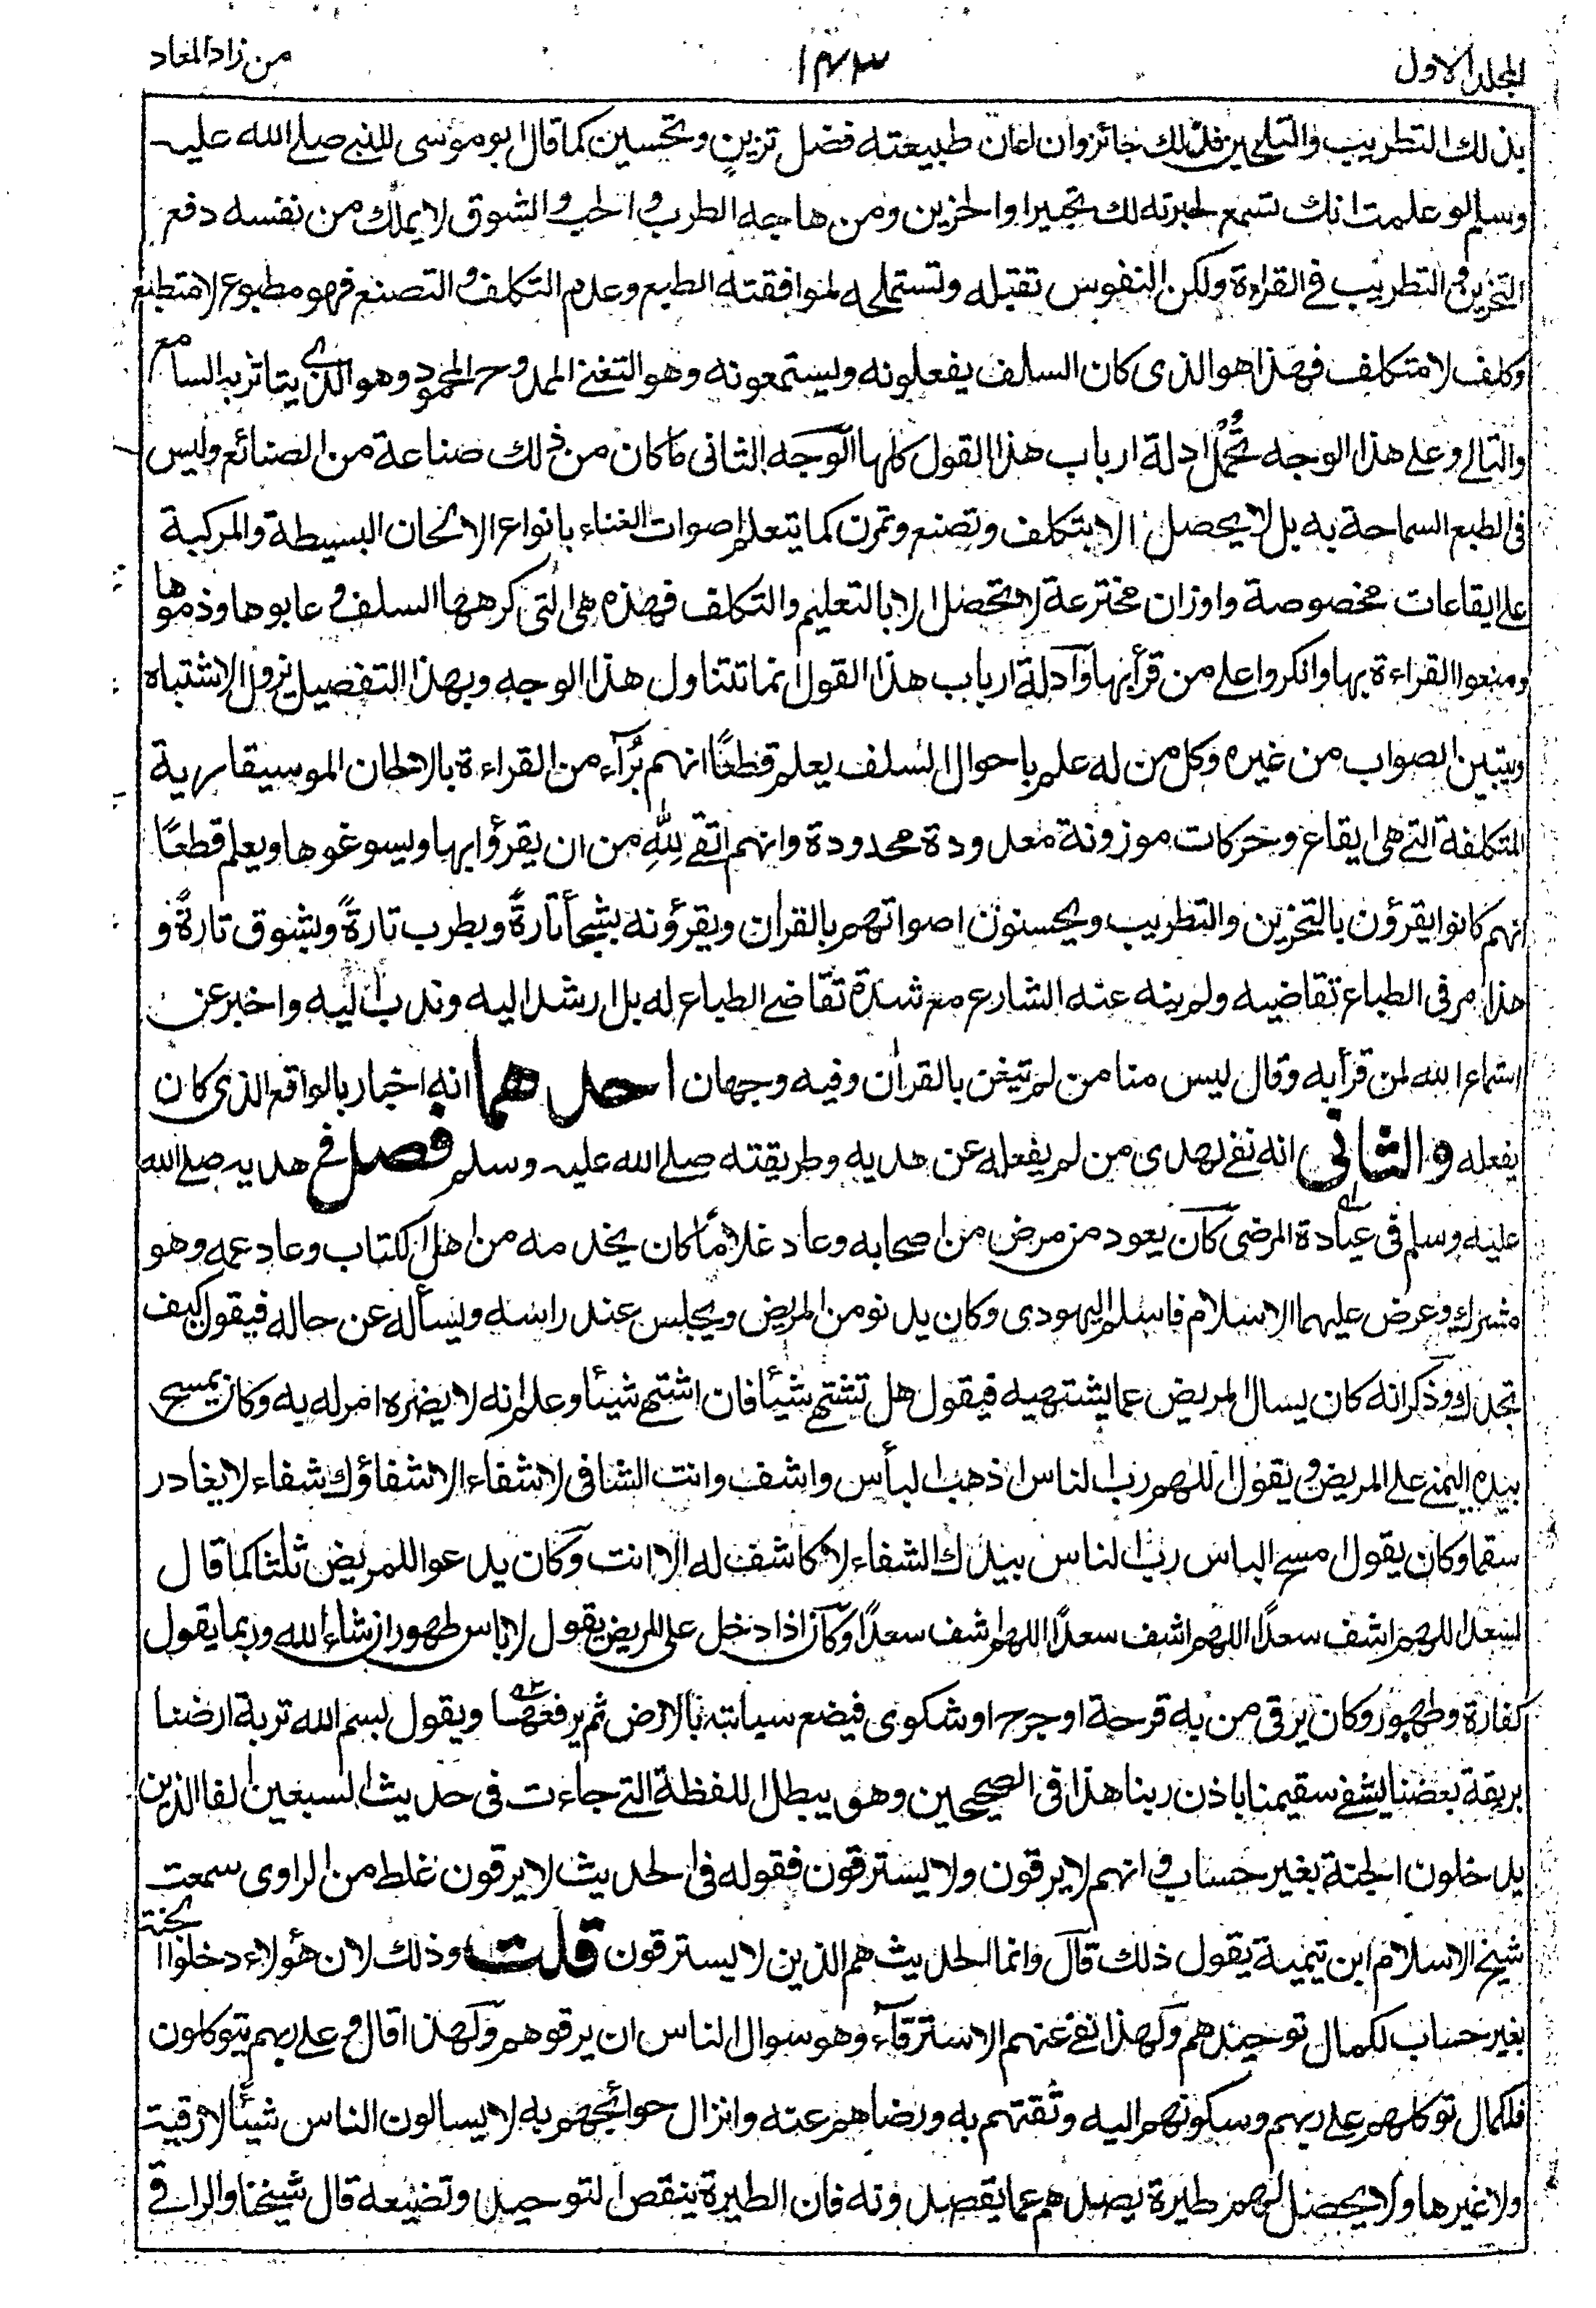 المجلد الاول
١٤٣
من زاد المعاد
بذلك التطريب والتلحين فذلك جائز وان اعان طبيعته فضل تزين وتحسين كما قال ابو موسى للنبي صلے الله عليه
وسلم لو علمت انك تسمع لحبرته لك تحبيرا والحزين ومن هاجه الطرب والحب والشوق لا يملك من نفسه دفع
التحزين والتطريب فى القراءة ولكن النفوس تقبله وتستملحه لموافقته الطبع وعدم التكلف والتصنع فهو مطبوع لا متطبع
وكلف لا متكلف فهذا هو الذى كان السلف يفعلونه ويستمعونه وهو التغنے الممدوح المحمود وهو الذى يتاثر به السامع
والتالے وعلے هذا الوجه تحمل ادلة ارباب هذا القول كلها الوجه الثانى ما كان من ذلك صناعة من الصنائع وليس
فى الطبع السماحة به بل لا يحصل الا بتكلف وتصنع وتمرن كما يتعلم اصوات الغناء بانواع الالحان البسيطة والمركبة
علے ايقاعات مخصوصة واوزان مخترعة لا تحصل الا بالتعليم والتكلف فهذه هى التى كرهها السلف وعابوها وذموها
ومنعوا القراءة بها وانكروا على من قرأ بها وادلة ارباب هذا القول انما تتناول هذا الوجه وبهذا التفصيل يزول الاشتباه
ويتبين الصواب من غيره وكل من له علم باحوال السلف يعلم قطعًا انهم برآء من القراءة بالالحان الموسيقارية
المتكلفة التے هى ايقاع وحركات موزونة معدودة محدودة وانهم اتقے لله من ان يقرؤا بها ويسوغوها ويعلم قطعًا
انهم كانوا يقرؤن بالتحزين والتطريب ويحسنون اصواتهم بالقرآن ويقرؤنه بشجأ تارةً وبطرب تارةً وبشوق تارةً و
هذا امر فى الطباع تقاضيه ولم ينه عنه الشارع مع شدة تقاضے الطباع له بل ارشد اليه وندب اليه واخبر عن
استماع الله لمن قرأ به وقال ليس منا من لم يتغن بالقرآن وفيه وجهان احدهما انه اخبار بالواقع الذى كان
يفعله والثانى انه نفے لهدى من لم يفعله عن هديه وطريقته صلے الله عليه وسلم فصل فى هديه صلے الله
عليه وسلم فى عيادة المرضى كان يعود من مرض من اصحابه وعاد غلامًا كان يخدمه من اهل الكتاب وعاد عمه وهو
مشرك وعرض عليهما الاسلام فاسلم اليهودى وكان يدنو من المريض ويجلس عند راسه ويسأله عن حاله فيقول كيف
تجدك وذكر انه كان يسال المريض عما يشتهيه فيقول هل تشتهے شيئا فان اشتهے شيئا وعلم انه لا يضره امر له به وكان يمسح
بيده اليمنے على المريض ويقول اللهم رب الناس اذهب البأس واشف وانت الشافى لا شفاء الا شفاؤك شفاء لا يغادر
سقما وكان يقول امسح الباس رب الناس بيدك الشفاء لا كاشف له الا انت وكان يدعو اللمريض ثلثا كما قال
لسعد اللهم اشف سعدًا اللهم اشف سعدًا اللهم اشف سعدًا وكان اذا دخل على المريض يقول لا باس طهور ان شاء الله وربما يقول
كفارة وطهور وكان يرقى من به قرحة او جرح او شكوى فيضع سبابته بالارض ثم يرفعها ويقول بسم الله تربة ارضنا
بريقة بعضنا يشفے سقيمنا باذن ربنا هذا فى الصحيحين وهو يبطل اللفظة التے جاءت فى حديث السبعين الفا الذين
يدخلون الجنة بغير حساب وانهم لا يرقون ولا يسترقون فقوله فى الحديث لا يرقون غلط من الراوى سمعت
شيخ الاسلام ابن تيمية يقول ذلك قال وانما الحديث هم الذين لا يسترقون قلت وذلك لان هؤلاء دخلوا الجنة
بغير حساب لكمال توحيدهم ولهذا نفے عنهم الاسترقاء وهو سوال الناس ان يرقوهم ولهذا قال وعلے ربهم يتوكلون
فلكمال توكلهم علے ربهم وسكونهم اليه وثقتهم به ورضاهم عنه وانزال حوائجهم به لا يسالون الناس شيئا لا رقية
ولا غيرها ولا يحصل لهم طيرة يصدهم عما يقصدونه فان الطيرة ينقص التوحيد وتضيعه قال شيخنا والراقے